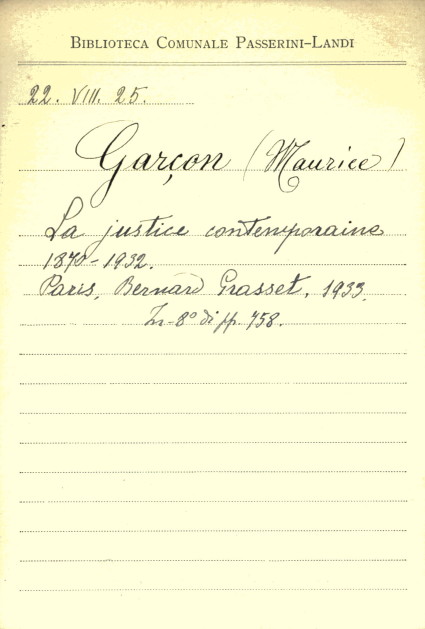 BIBLIOTECA COMUNALE PASSERINI-LANDI
22. VIII. 25.
Garçon (Maurice)
La justice contemporaine
1870-1932.
Paris, Bernard Grasset, 1933.
In-8° di pp. 758.